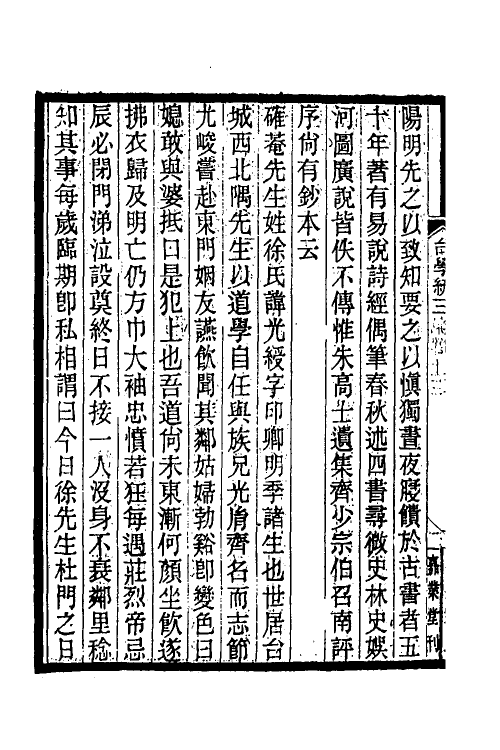 陽明先之以致知要之以愼獨晝夜寢饋於古書者五
十年著有易說詩經偶筆春秋述四書尋微史林史娱
河圖廣說皆佚不傳惟朱高士遺集齊少宗伯召南評
序尙有鈔本云
確菴先生姓徐氏諱光綬字印卿明季諸生也世居台
城西北隅先生以道學自任與族兄光胤齊名而志節
尤峻嘗赴東門姻友讌飮聞其鄰姑婦勃谿卽變色曰
媳敢與婆抵口是犯上也吾道尙未東漸何顏坐飮遂
拂衣歸及明亡仍方巾大袖忠憤若狂每遇莊烈帝忌
辰必閉門涕泣設奠終日不接一人沒身不衰鄰里稔
知其事每歲臨期卽私相謂曰今日徐先生杜門之日
台學統三
嘉業堂刊